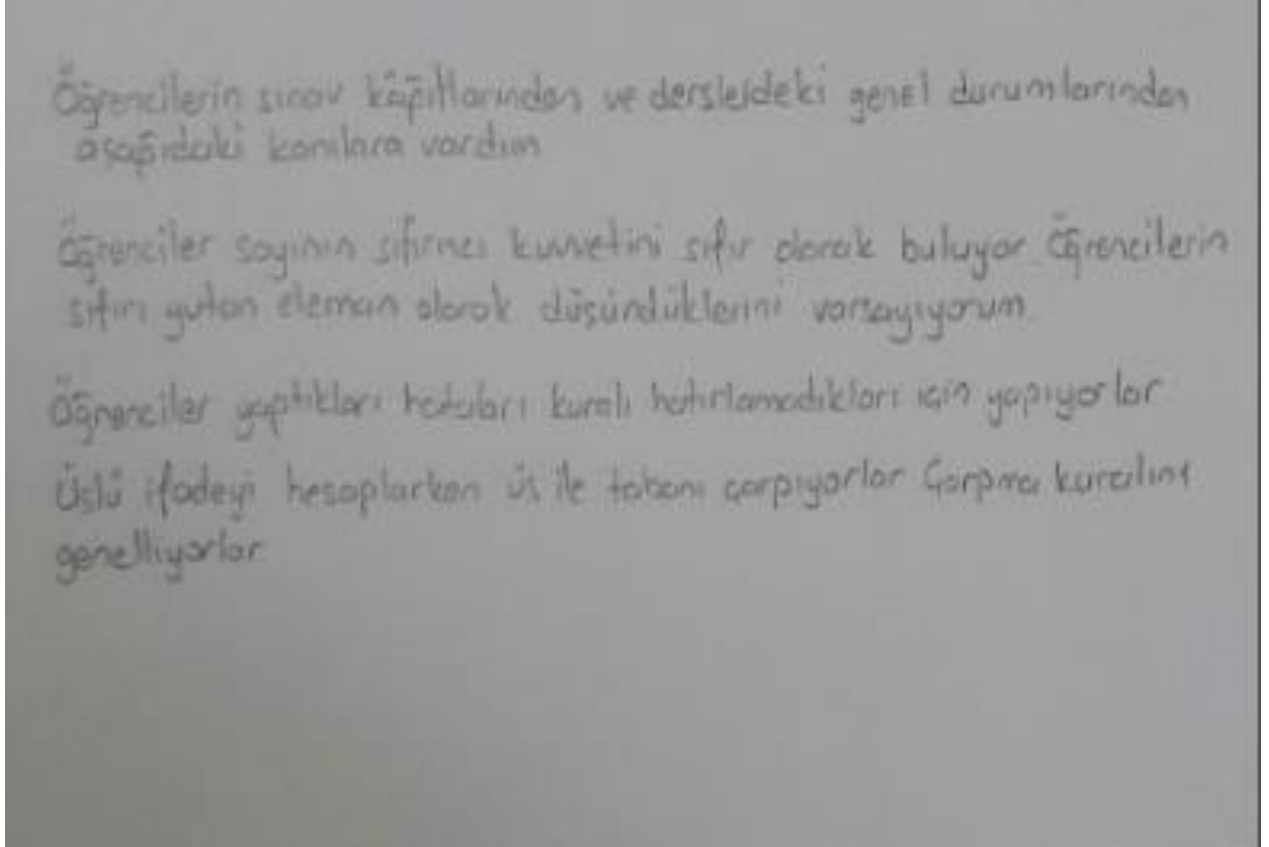 Öğrencilerin sınav kâğıtlarından ve derslerdeki genel durumlarından
aşağıdaki kanılara vardım
Öğrenciler sayının sıfırıncı kuvvetini sıfır olarak buluyor Öğrencilerin
sıfırı yutan eleman olarak düşündüklerini varsayıyorum.
Öğrenciler yaptıkları hataları kuralı hatırlamadıkları için yapıyorlar
Üslü ifadeyi hesaplarken üs ile tabanı çarpıyorlar Çarpma kuralını
genelliyorlar